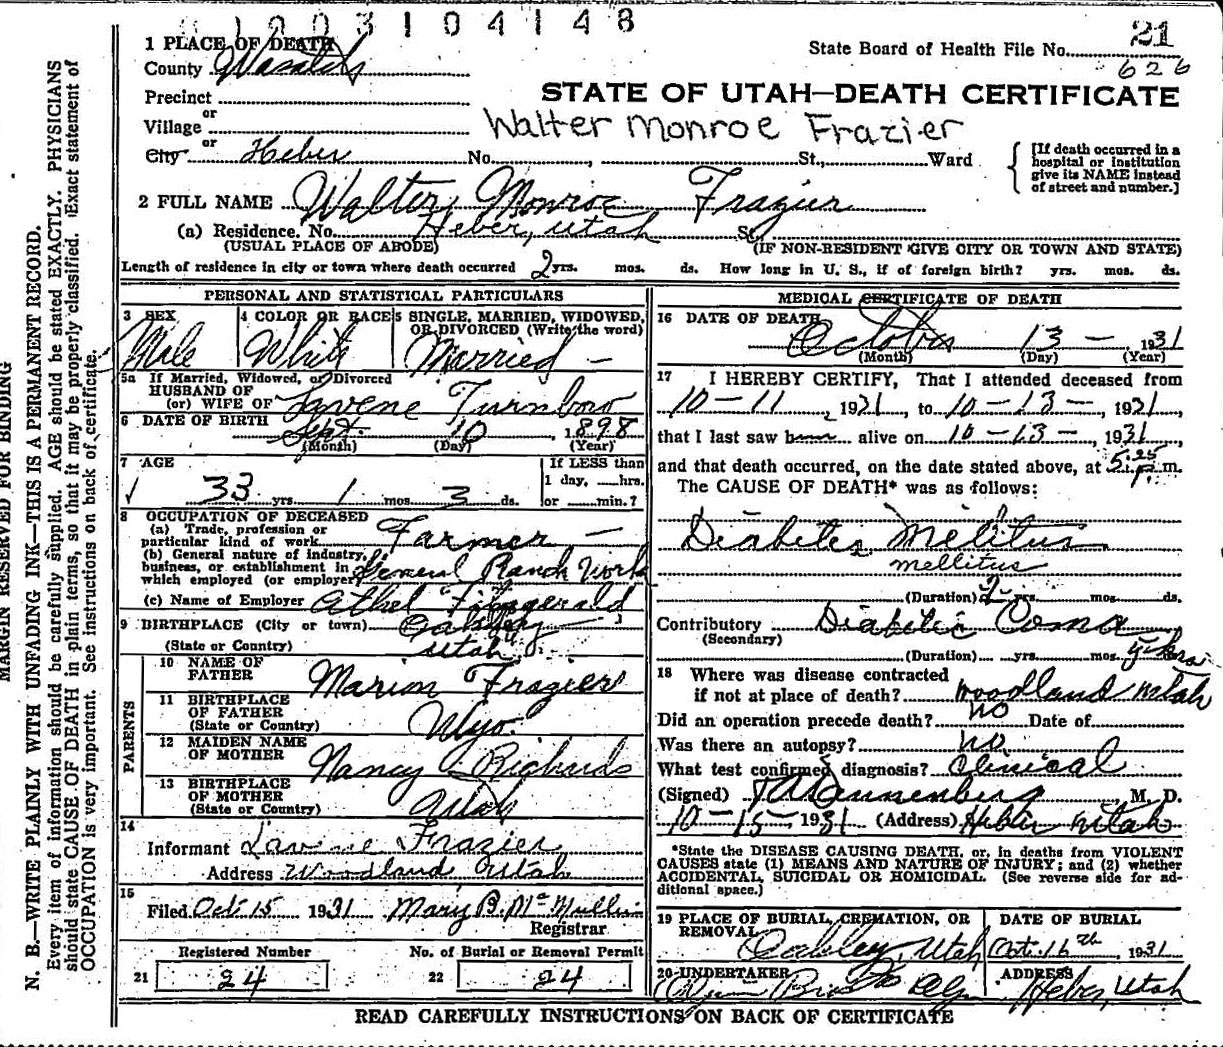 1003104148
21
1 PLACE OF DEATH
State Board of Health File No.
626
County Wasatch
Precinct
STATE OF UTAH—DEATH CERTIFICATE
or
Village
Walter Monroe Frazier
or
City Heber No. , St., Ward
[If death occurred in a
hospital or institution
give its NAME instead
of street and number.]
2 FULL NAME Walter Monroe Frazier
(a) Residence. No. Heber, Utah St.
(USUAL PLACE OF ABODE) (IF NON-RESIDENT GIVE CITY OR TOWN AND STATE)
Length of residence in city or town where death occurred 2 yrs. mos. ds. How long in U. S., if of foreign birth? yrs. mos. ds.
PERSONAL AND STATISTICAL PARTICULARS
3 SEX
Male
4 COLOR OR RACE
White
5 SINGLE, MARRIED, WIDOWED,
OR DIVORCED (Write the word)
Married —
5a If Married, Widowed, or Divorced
HUSBAND OF
(or) WIFE OF Lavene Turnbow
6 DATE OF BIRTH Sept. 10, 1898
(Month) (Day) (Year)
7 AGE
33 yrs. 1 mos. 3 ds.
If LESS than
1 day, hrs.
or min.?
8 OCCUPATION OF DECEASED
(a) Trade, profession or
particular kind of work Farmer —
(b) General nature of industry,
business, or establishment in
which employed (or employer) General Ranch Work
(c) Name of Employer Athel Fitzgerald
9 BIRTHPLACE (City or town) Oakley
(State or Country) Utah
PARENTS
10 NAME OF
FATHER Marion Frazier
11 BIRTHPLACE
OF FATHER
(State or Country) Wyo.
12 MAIDEN NAME
OF MOTHER Nancy Richards
13 BIRTHPLACE
OF MOTHER
(State or Country) Utah
14
Informant Lavine Frazier
Address Woodland, Utah
15
Filed Oct 15 1931 Mary B. McMullin
Registrar
Registered Number
21 24
No. of Burial or Removal Permit
22 24
MEDICAL CERTIFICATE OF DEATH
16 DATE OF DEATH
October 13 — 1931
(Month) (Day) (Year)
17 I HEREBY CERTIFY, That I attended deceased from
10-11, 1931, to 10-13-, 1931,
that I last saw h alive on 10-13-, 1931,
and that death occurred, on the date stated above, at 5:25 P. m.
The CAUSE OF DEATH* was as follows:
Diabetis Melitus
mellitus
(Duration) 2 yrs. mos. ds.
Contributory Diabetic Coma
(Secondary)
(Duration) yrs. mos.
18 Where was disease contracted
if not at place of death? Woodland Utah
Did an operation precede death? no Date of
Was there an autopsy? no
What test confirmed diagnosis? Clinical
(Signed) M. D.
10-15- 1931 (Address) Heber Utah
*State the DISEASE CAUSING DEATH, or, in deaths from VIOLENT
CAUSES state (1) MEANS AND NATURE OF INJURY; and (2) whether
ACCIDENTAL, SUICIDAL OR HOMICIDAL. (See reverse side for ad-
ditional space.)
19 PLACE OF BURIAL, CREMATION, OR
REMOVAL
Oakley, Utah
DATE OF BURIAL
Oct. 16th 1931
20 UNDERTAKER
ADDRESS
Heber, Utah
READ CAREFULLY INSTRUCTIONS ON BACK OF CERTIFICATE
MARGIN RESERVED FOR BINDING
N. B.—WRITE PLAINLY WITH UNFADING INK—THIS IS A PERMANENT RECORD.
Every item of information should be carefully supplied. AGE should be stated EXACTLY. PHYSICIANS
should state CAUSE OF DEATH in plain terms, so that it may be properly classified. Exact statement of
OCCUPATION is very important. See instructions on back of certificate.